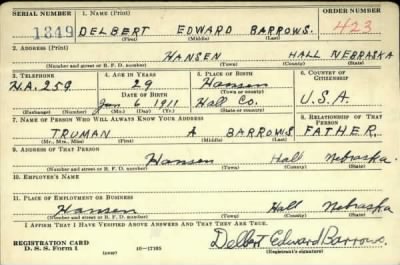 SERIAL NUMBER 1. NAME (Print) ORDER NUMBER
1849 DELBERT EDWARD BARROWS. 423
(First) (Middle) (Last)
2. ADDRESS (Print)
HANSEN HALL NEBRASKA
(Number and street or R. F. D. number) (Town) (County) (State)
3. TELEPHONE 4. AGE IN YEARS 5. PLACE OF BIRTH 6. COUNTRY OF CITIZENSHIP
H.A. 259 29 Hansen
DATE OF BIRTH (Town or county)
Jan 6 1911 Hall Co. U.S.A.
(Exchange) (Number) (Mo.) (Day) (Yr.) (State or country)
7. NAME OF PERSON WHO WILL ALWAYS KNOW YOUR ADDRESS 8. RELATIONSHIP OF THAT PERSON
TRUMAN A BARROWS FATHER
(Mr., Mrs., Miss) (First) (Middle) (Last)
9. ADDRESS OF THAT PERSON
Hansen Hall Nebraska.
(Number and street or R. F. D. number) (Town) (County) (State)
10. EMPLOYER'S NAME
11. PLACE OF EMPLOYMENT OR BUSINESS
Hansen Hall Nebraska
(Number and street or R. F. D. number) (Town) (County) (State)
I AFFIRM THAT I HAVE VERIFIED ABOVE ANSWERS AND THAT THEY ARE TRUE.
REGISTRATION CARD
D. S. S. Form 1 (over) 16—17105 Delbert Edward Barrows.
(Registrant's signature)